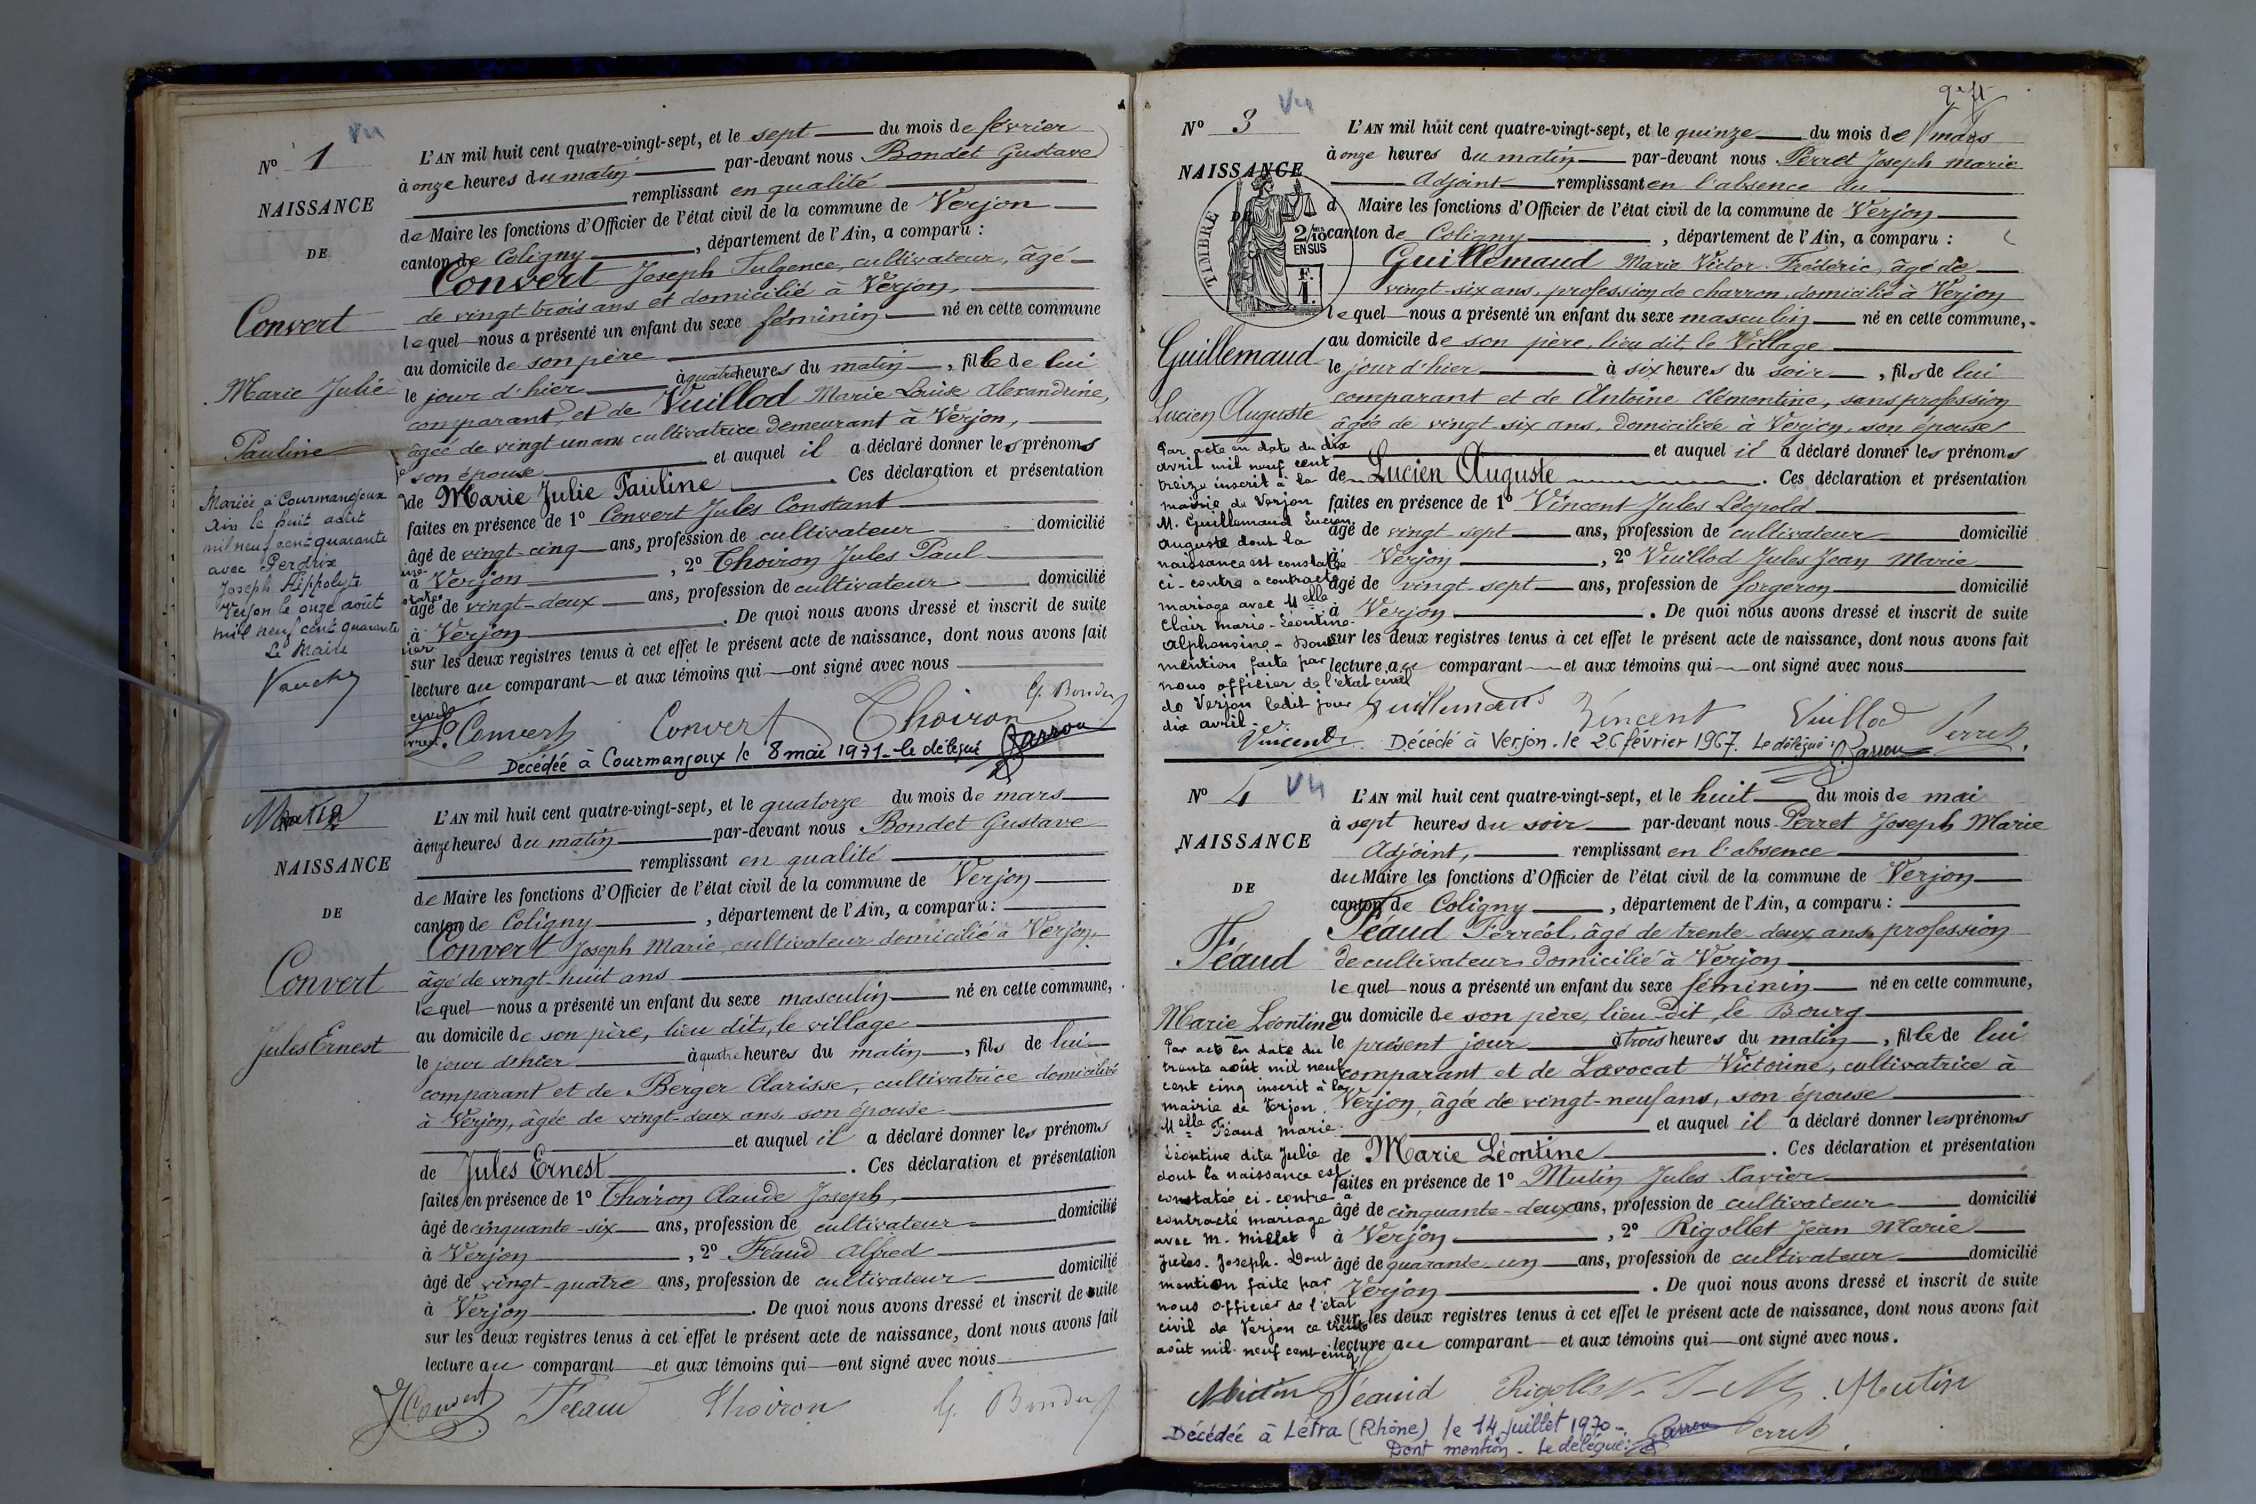 Vu
N° 1
NAISSANCE
DE
Convert
Marie Julie
Pauline
Mariée à Courmangoux
Ain le huit août
mil neuf cent quarante
avec Perdrix
Joseph Hippolyte
Verjon le onze août
mil neuf cent quarante
Le Maire
Vauchy
L'AN mil huit cent quatre-vingt-sept, et le sept du mois de février
à onze heures du matin par-devant nous Bondet Gustave
remplissant en qualité
de Maire les fonctions d'Officier de l'état civil de la commune de Verjon
canton de Coligny, département de l'Ain, a comparu :
Convert Joseph Fulgence, cultivateur, âgé
de vingt-trois ans et domicilié à Verjon,
lequel nous a présenté un enfant du sexe féminin né en cette commune
au domicile de son père
le jour d'hier à quatre heures du matin, fille de lui
comparant, et de Vuillod Marie Louise Alexandrine,
âgée de vingt un ans cultivatrice demeurant à Verjon,
son épouse et auquel il a déclaré donner les prénoms
de Marie Julie Pauline. Ces déclaration et présentation
faites en présence de 1° Convert Jules Constant
âgé de vingt-cinq ans, profession de cultivateur domicilié
à Verjon, 2° Thoiron Jules Paul
âgé de vingt-deux ans, profession de cultivateur domicilié
à Verjon. De quoi nous avons dressé et inscrit de suite
sur les deux registres tenus à cet effet le présent acte de naissance, dont nous avons fait
lecture au comparant et aux témoins qui ont signé avec nous
Convert Convert Thoiron G. Bondet
Décédée à Courmangoux le 8 mai 1971 - le délégué Carron
Mutin
NAISSANCE
DE
Convert
Jules Ernest
L'AN mil huit cent quatre-vingt-sept, et le quatorze du mois de mars
à onze heures du matin par-devant nous Bondet Gustave
remplissant en qualité
de Maire les fonctions d'Officier de l'état civil de la commune de Verjon
canton de Coligny, département de l'Ain, a comparu :
Convert Joseph Marie cultivateur domicilié à Verjon,
âgé de vingt-huit ans
lequel nous a présenté un enfant du sexe masculin né en cette commune,
au domicile de son père, lieu dit, le village
le jour d'hier à quatre heures du matin, fils de lui
comparant et de Berger Clarisse, cultivatrice domiciliée
à Verjon, âgée de vingt-deux ans, son épouse
et auquel il a déclaré donner les prénoms
de Jules Ernest. Ces déclaration et présentation
faites en présence de 1° Thoiron Claude Joseph,
âgé de cinquante-six ans, profession de cultivateur domicilié
à Verjon, 2° Féaud Alfred
âgé de vingt-quatre ans, profession de cultivateur domicilié
à Verjon. De quoi nous avons dressé et inscrit de suite
sur les deux registres tenus à cet effet le présent acte de naissance, dont nous avons fait
lecture au comparant et aux témoins qui ont signé avec nous
J Convert Féaud Thoiron G. Bondet
Vu
N° 3
NAISSANCE
DE
TIMBRE
2/10 EN SUS
F. 1.
Guillemaud
Lucien Auguste
Par acte en date du dix
avril mil neuf cent
treize inscrit à la
mairie de Verjon
M. Guillemaud Lucien
Auguste dont la
naissance est constatée
ci-contre a contracté
mariage avec Melle
Clair Marie-Léontine-
Alphonsine - Dont
mention faite par
nous officier de l'état civil
de Verjon ledit jour
dix avril.
Vincent
L'AN mil huit cent quatre-vingt-sept, et le quinze du mois de mars
à onze heures du matin par-devant nous Perret Joseph Marie
Adjoint remplissant en l'absence du
d Maire les fonctions d'Officier de l'état civil de la commune de Verjon
canton de Coligny, département de l'Ain, a comparu :
Guillemaud Marie Victor Frédéric, âgé de
vingt-six ans, profession de charron, domicilié à Verjon
lequel nous a présenté un enfant du sexe masculin né en cette commune,
au domicile de son père, lieu dit, le Village
le jour d'hier à six heures du soir, fils de lui
comparant et de Antoine Clémentine, sans profession
âgée de vingt six ans, domiciliée à Verjon, son épouse
et auquel il a déclaré donner les prénoms
de Lucien Auguste. Ces déclaration et présentation
faites en présence de 1° Vincent Jules Léopold
âgé de vingt-sept ans, profession de cultivateur domicilié
à Verjon, 2° Vuillod Jules Jean Marie
âgé de vingt-sept ans, profession de forgeron domicilié
à Verjon. De quoi nous avons dressé et inscrit de suite
sur les deux registres tenus à cet effet le présent acte de naissance, dont nous avons fait
lecture au comparant et aux témoins qui ont signé avec nous
Guillemaud Vincent Vuillod Perret
Décédé à Verjon. le 26 février 1967. Le délégué : Carron
N° 4 Vu
NAISSANCE
DE
Féaud
Marie Léontine
Par acte en date du
trente août mil neuf
cent cinq inscrit à la
mairie de Verjon
Melle Féaud Marie
Léontine dite Julie
dont la naissance est
constatée ci-contre a
contracté mariage
avec M. Millet
Jules. Joseph. Dont
mention faite par
nous officier de l'état
civil de Verjon ce trente
août mil neuf cent cinq
L'AN mil huit cent quatre-vingt-sept, et le huit du mois de mai
à sept heures du soir par-devant nous Perret Joseph Marie
Adjoint, remplissant en l'absence
du Maire les fonctions d'Officier de l'état civil de la commune de Verjon
canton de Coligny, département de l'Ain, a comparu :
Féaud Ferréol, âgé de trente-deux ans, profession
de cultivateur domicilié à Verjon
lequel nous a présenté un enfant du sexe féminin né en cette commune,
au domicile de son père, lieu dit, le Bourg
le présent jour à trois heures du matin, fille de lui
comparant et de Lavocat Victorine, cultivatrice à
Verjon, âgée de vingt-neuf ans, son épouse
et auquel il a déclaré donner les prénoms
de Marie Léontine. Ces déclaration et présentation
faites en présence de 1° Mutin Jules Xavier
âgé de cinquante-deux ans, profession de cultivateur domicilié
à Verjon, 2° Rigollet Jean Marie
âgé de quarante-un ans, profession de cultivateur domicilié
Verjon. De quoi nous avons dressé et inscrit de suite
sur les deux registres tenus à cet effet le présent acte de naissance, dont nous avons fait
lecture au comparant et aux témoins qui ont signé avec nous.
Féaud Rigollet J-M Mutin
Décédée à Létra (Rhône) le 14 juillet 1970. Carron Perret
Dont mention - Le délégué :